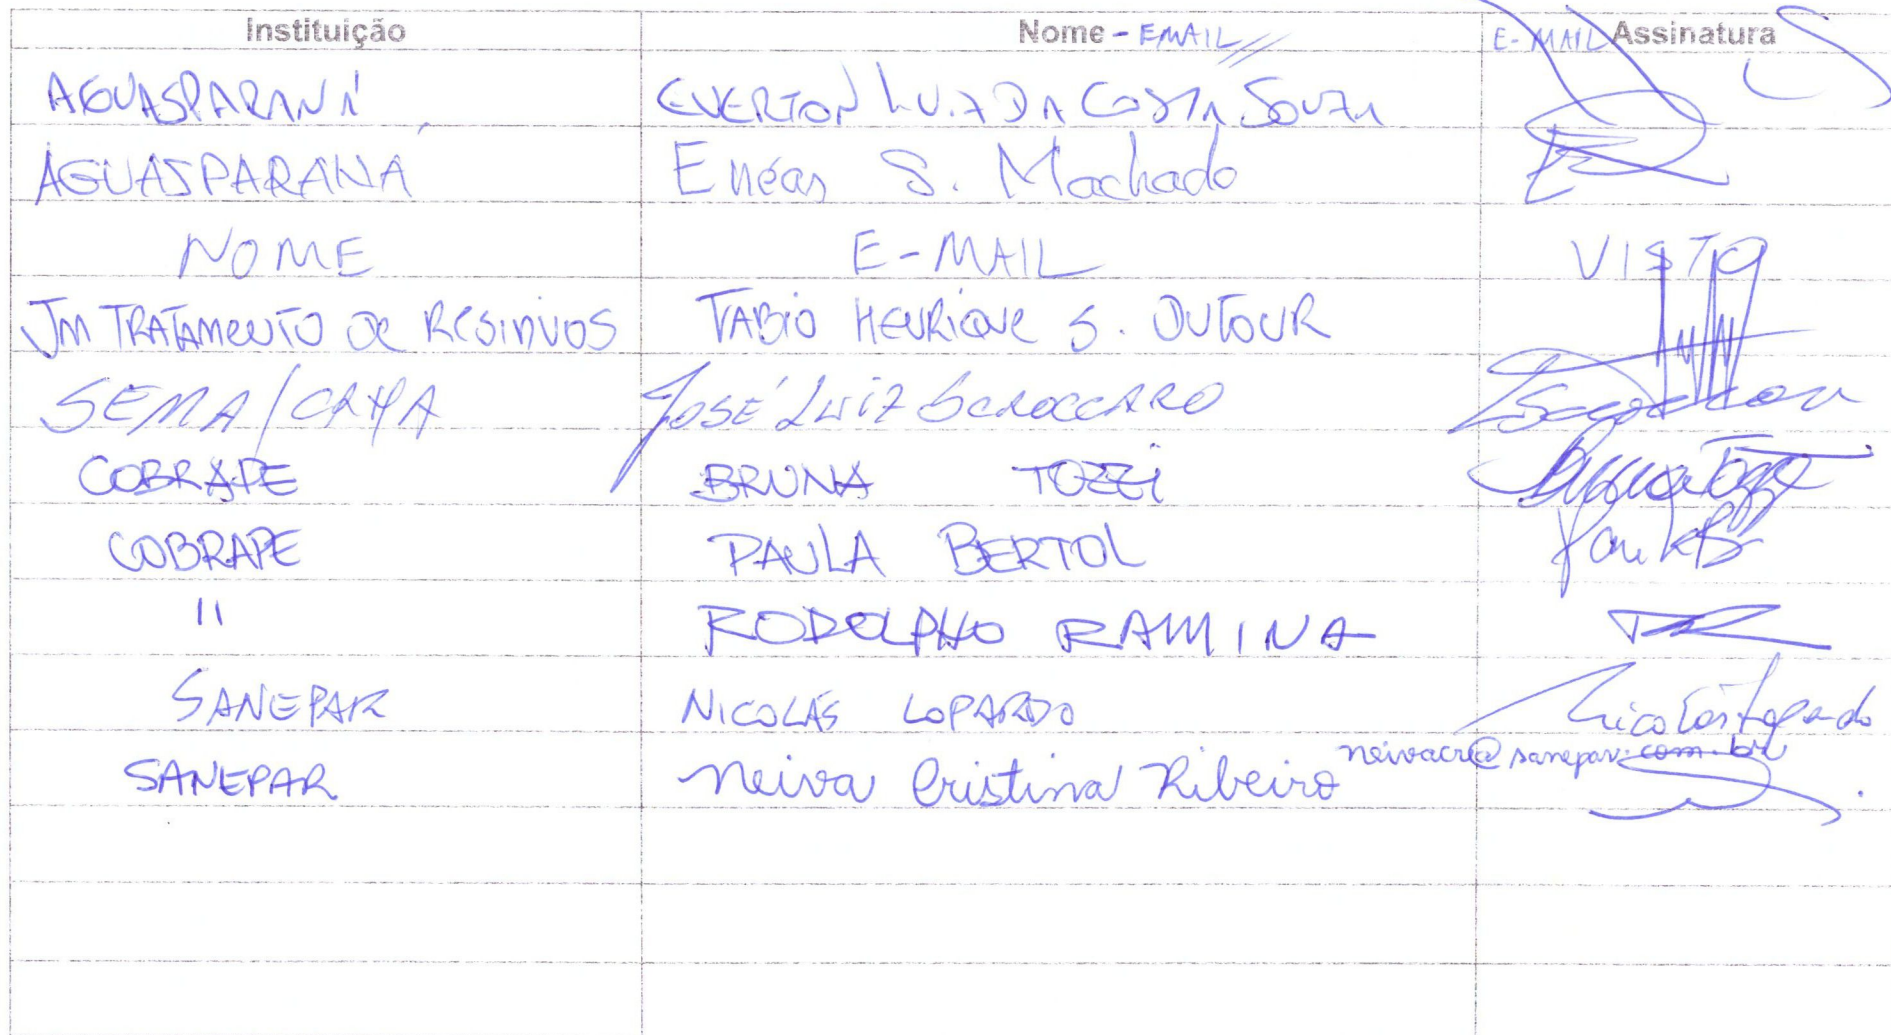 Instituição Nome - EMAIL E-MAIL Assinatura
AGUASPARANÁ EVERTON LUIZ DA COSTA SOUZA
ÁGUASPARANÁ Enéas S. Machado
NOME E-MAIL VISTO
JM TRATAMENTO DE RESIDUOS FABIO HENRIQUE S. DUTOUR
SEMA/ JOSÉ LUIZ SCROCCARO
COBRAPE BRUNA TOZZI
COBRAPE PAULA BERTOL
11 RODOLPHO RAMINA
SANEPAR NICOLÁS LOPARDO Nicolás Lopardo
SANEPAR Neiva Cristina Ribeiro neivacr@sanepar.com.br